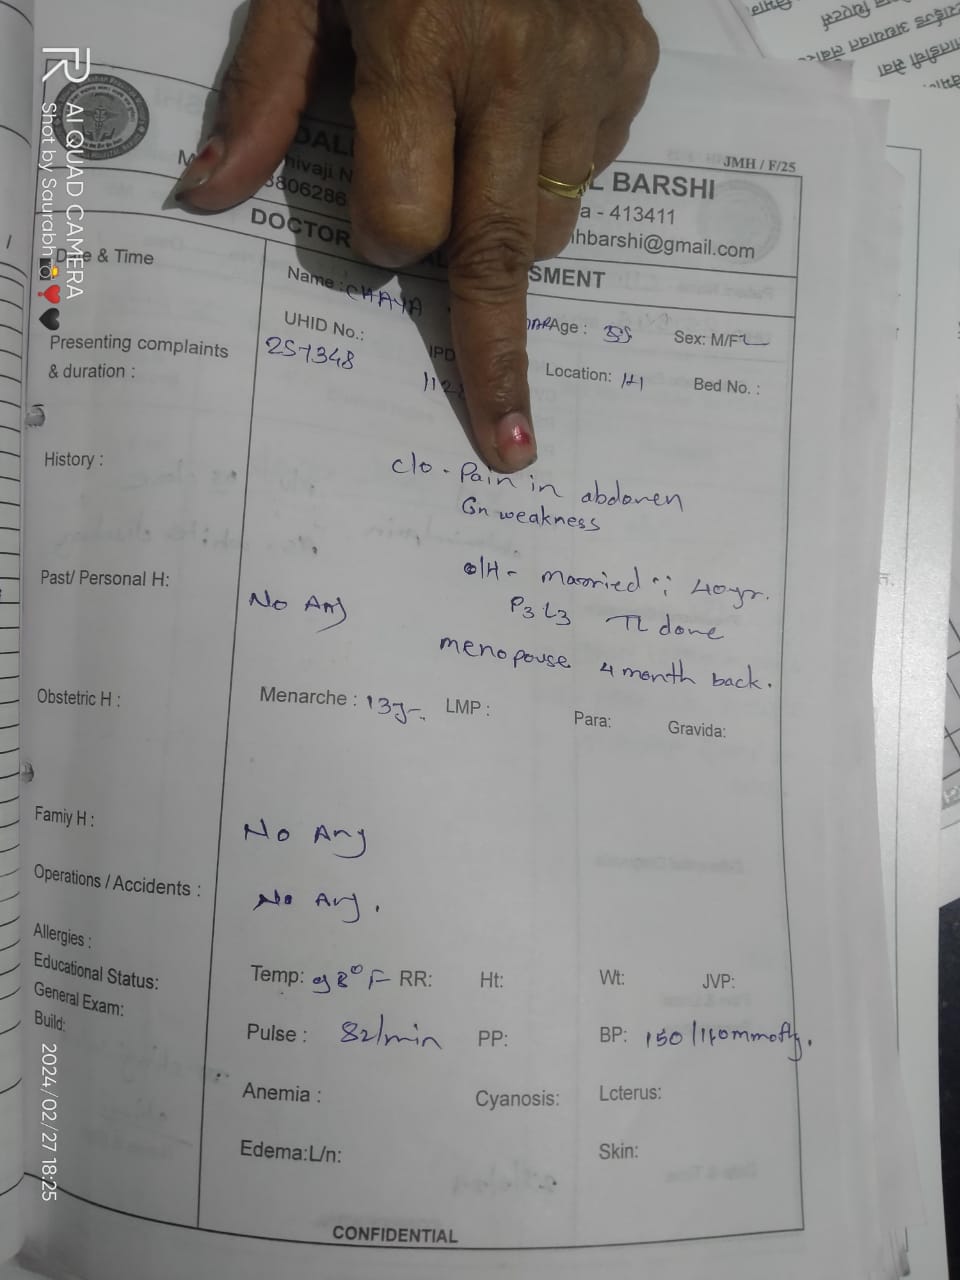 JMH / F/25
DAL L BARSHI
hivaji N a - 413411
8806286 hbarshi@gmail.com
DOCTOR SMENT
Date & Time
Name : CHAYA Age : 55 Sex: M/F
UHID No.: 257348 IPD 112 Location: Bed No. :
Presenting complaints
& duration :
History :
c/o - Pain in abdomen
Gn weakness
o/H - married : 40yr.
P3 L3 TL done
menopouse 4 month back.
Past/ Personal H:
No Any
Obstetric H : Menarche : 13yr. LMP : Para: Gravida:
Famiy H :
No Any
Operations / Accidents :
No Any.
Allergies :
Educational Status:
General Exam:
Build:
Temp: 98° F RR: Ht: Wt: JVP:
Pulse : 82/min PP: BP: 150/110mmofHg.
Anemia : Cyanosis: Lcterus:
Edema:L/n: Skin:
CONFIDENTIAL
AI QUAD CAMERA
Shot by Saurabh
2024/02/27 18:25